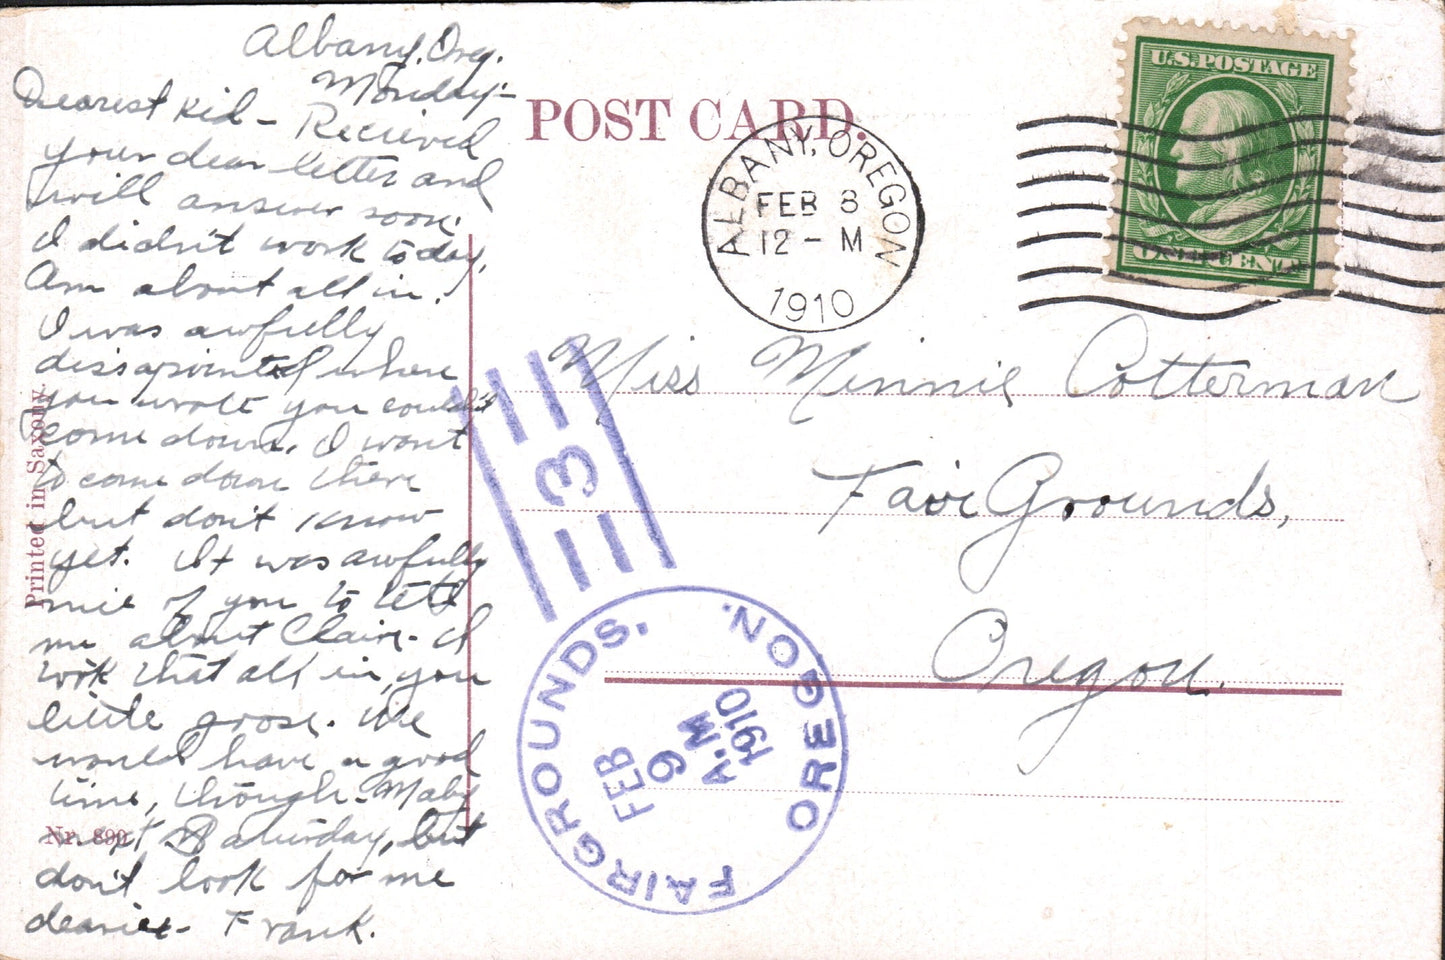 Albany, Oreg.
Monday-
Dearest Kid - Recieved
your dear letter and
will answer soon.
I didn't work today,
Am about all in.
I was awfully
dissapointed when
you wrote you couldn't
come down. I want
to come down there
but don't know
yet. It was awfully
nice of you to tell
me about Claire - I
took that all in, you
little goose. We
would have a good
time, though - Maby
next Saturday, but
don't look for me
dearie - Frank.
Printed in Saxony.
Nr. 890
POST CARD.
ALBANY, OREGON
FEB 8
12 - M
1910
U.S. POSTAGE
ONE CENT
Miss Minnie Cotterman
Fair Grounds,
Oregon.
3
FAIRGROUNDS, OREGON.
FEB
9
A.M
1910